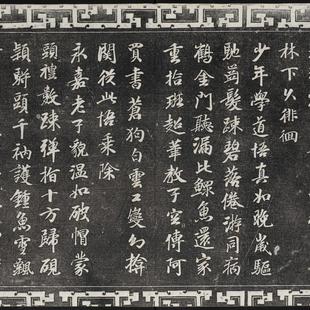 林下久徘徊
少年學道悟真如晚歲驅
馳茵髮疎碧落倦游同病
鶴金門聽漏比鰥魚還家
重拾班超筆教子空傳阿
買書蒼狗白雲工變幻
閱從此悟乘除
永嘉老子貌温如破帽蒙
頭禮數疎彈指十方歸硯
穎斷頭千衲護鍾魚雲飄